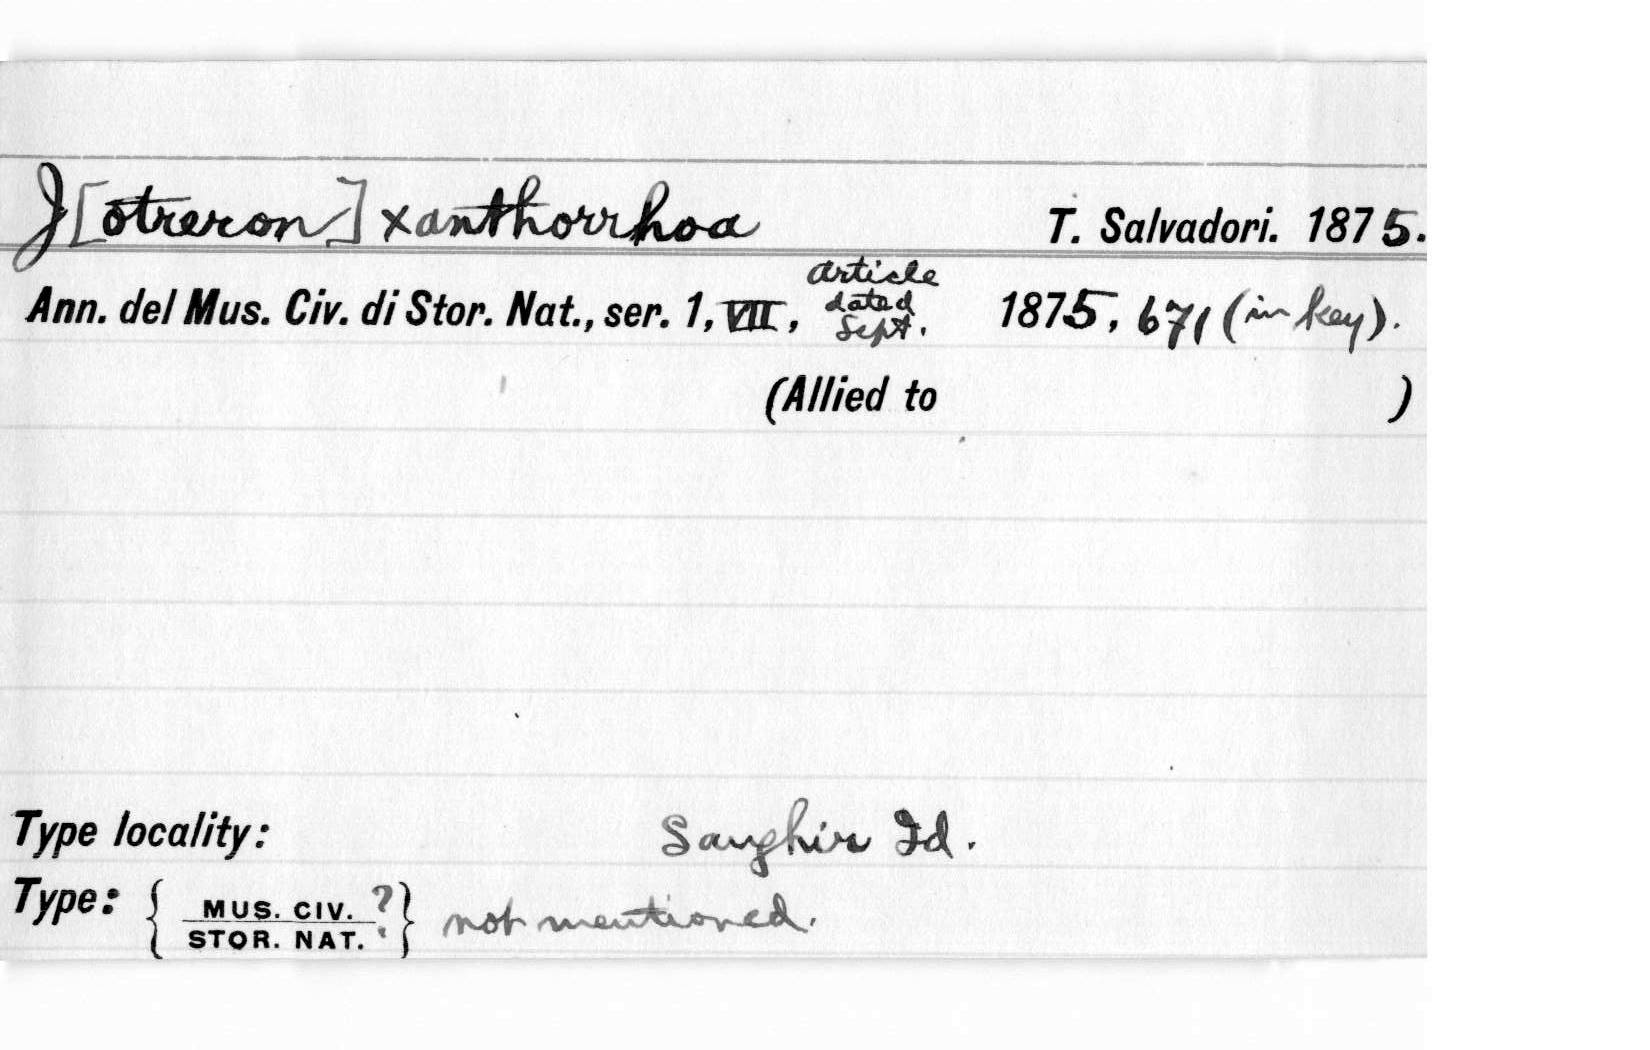 J[otreron] xanthorrhoa T. Salvadori. 1875.
Ann. del Mus. Civ. di Stor. Nat., ser. 1, VII, article dated Sept. 1875, 671 (in key).
(Allied to )
Type locality: Sanghir Id.
Type: { MUS. CIV. STOR. NAT. ? } not mentioned.